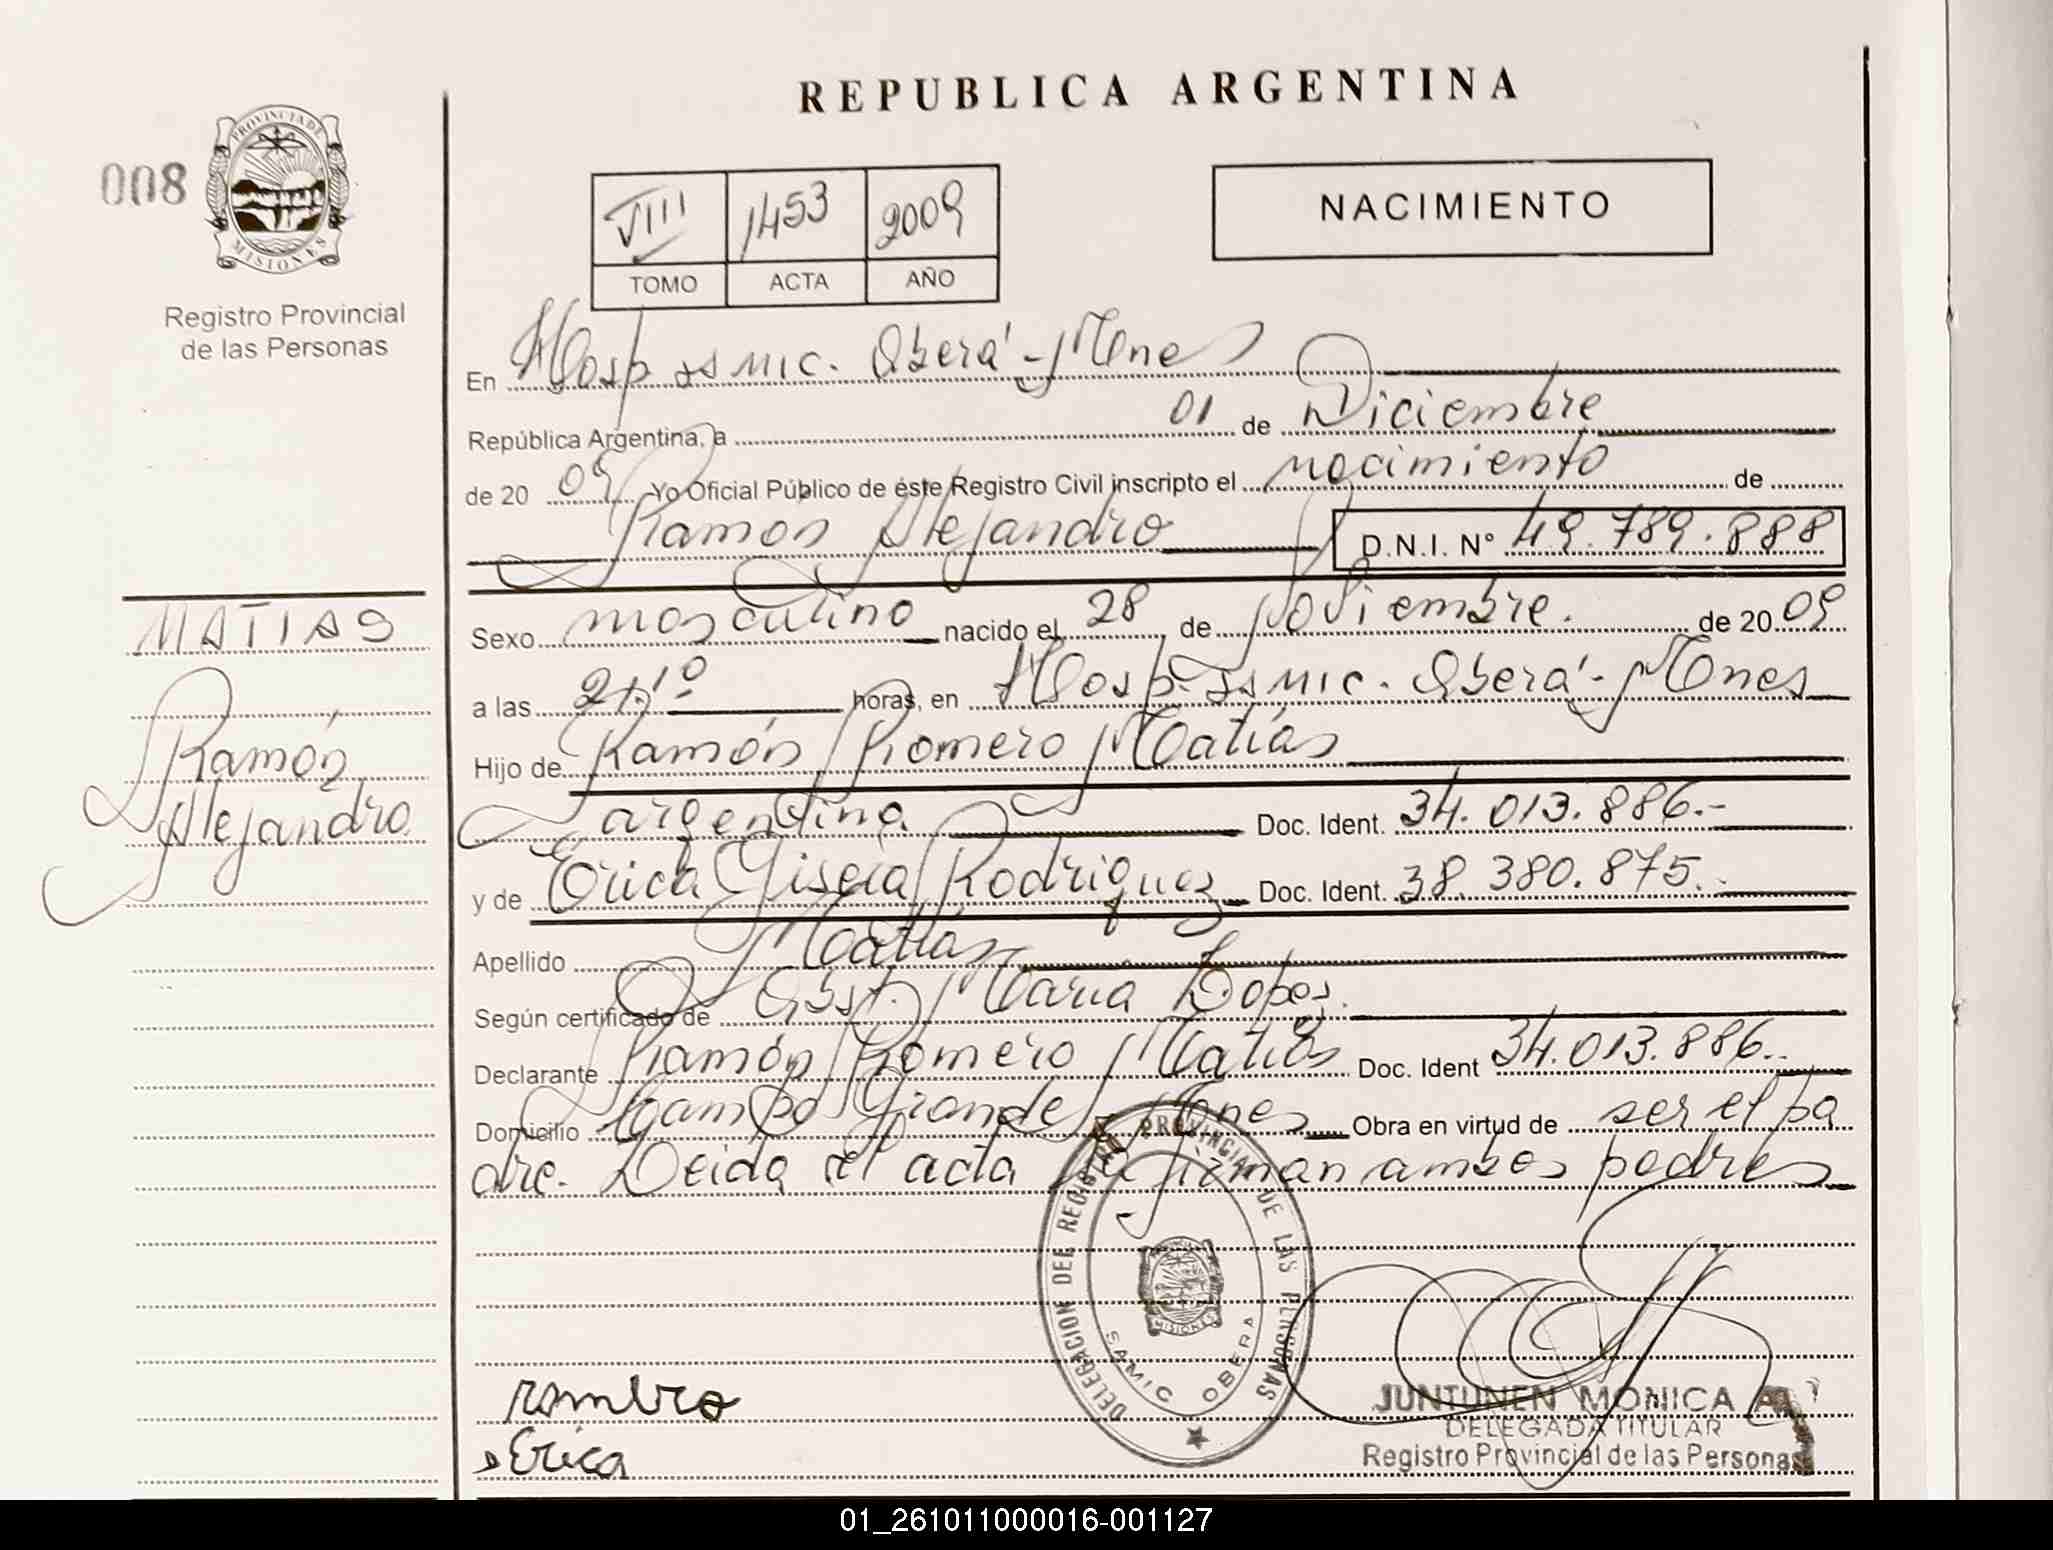 REPUBLICA ARGENTINA
008
PROVINCIA DE
MISIONES
Registro Provincial
de las Personas
VIII 1453 2009
TOMO ACTA AÑO
NACIMIENTO
En Hosp. SS MIC. Oberá - Mnes
República Argentina, a 01 de Diciembre
de 20 09 Yo Oficial Público de éste Registro Civil inscripto el nacimiento de
Ramón Alejandro D.N.I. N° 49.789.888
MATIAS
Ramón
Alejandro
Sexo masculino nacido el 28 de Noviembre. de 20 09
a las horas, en Hosp. SS MIC. Oberá - Mnes
Hijo de Ramón Romero Matías
argentina Doc. Ident. 34.013.886.-
y de Erica Rodriguez Doc. Ident. 38.380.875.-
Apellido Matías
Según certificado de Obst. María Lopes.
Declarante Ramón Romero Matías Doc. Ident 34.013.886.-
Domicilio Campo Grande Mnes Obra en virtud de ser el pa
dre. Leida el acta la firman ambos padres
DELEGACION DEL REGISTRO PROVINCIAL DE LAS PERSONAS
MISIONES
SAMIC OBERA
Erica
JUNTUNEN MONICA A
DELEGADA TITULAR
Registro Provincial de las Personas
01_261011000016-001127